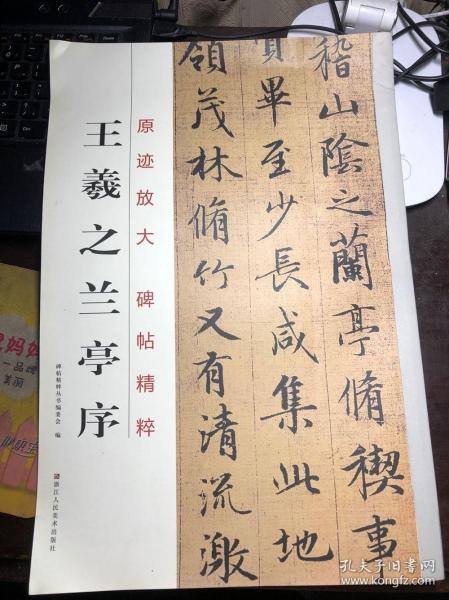 稽山陰之蘭亭脩稧事
賢畢至少長咸集此地
領茂林脩竹又有清流激
原迹放大 碑帖精粹
王羲之兰亭序
碑帖精粹丛书编委会 编
浙江人民美术出版社
妈妈
一品牌
美丽
孔夫子旧书网
kongfz.com